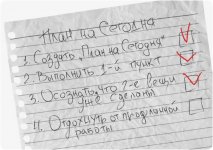 План на Сегодня
1. Создать „План на Сегодня"
2. Выполнить 1-й пункт
3. Осознать, что 2-е вещи
уже сделаны
4. Отдохнуть от проделанной
работы